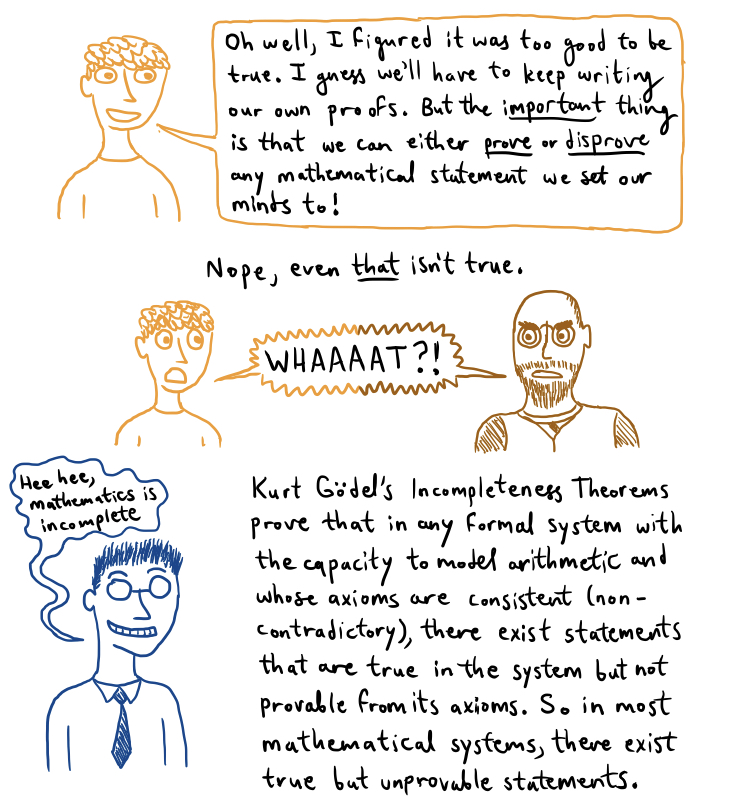 Oh well, I figured it was too good to be
true. I guess we'll have to keep writing
our own proofs. But the important thing
is that we can either prove or disprove
any mathematical statement we set our
minds to!
Nope, even that isn't true.
WHAAAAT?!
Hee hee,
mathematics is
incomplete
Kurt Gödel's Incompleteness Theorems
prove that in any formal system with
the capacity to model arithmetic and
whose axioms are consistent (non-
contradictory), there exist statements
that are true in the system but not
provable from its axioms. So in most
mathematical systems, there exist
true but unprovable statements.